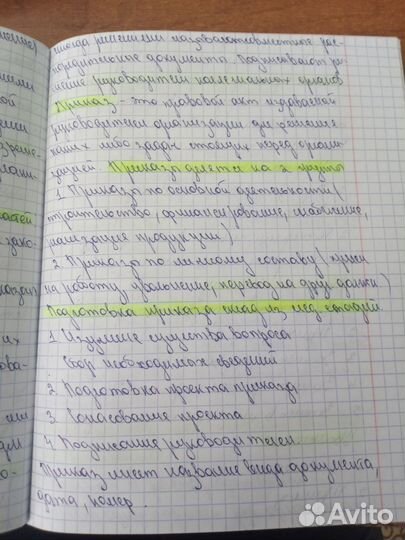 иногда решениями называют совместные рас-
порядительные документы. Подписывают ре-
шение руководители коллегиальных органов
Приказ - это правовой акт издаваемый
руководителем организации для решения
каких либо задач стоящих перед органи
зацией. Приказы делятся на 2 группы
1 Приказы по основной деятельности (
строительство, финансирование, снабжение,
реализация продукции)
2 Приказы по личному составу (прием
на работу, увольнение, перевод на друг. должн)
Подготовка приказа склад из след стадий.
1 Изучение существа вопроса
Сбор необходимых сведений
2 Подготовка проекта приказа
3 Согласование проекта
4 Подписание руководителем
Приказ имеет название вида документа,
дата, номер.
Avito